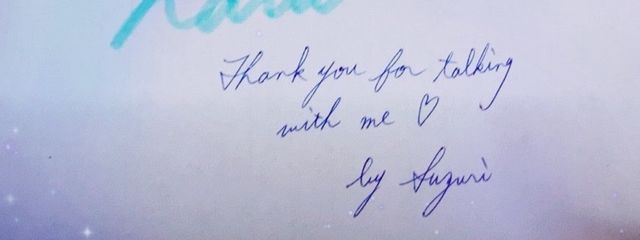 Thank you for talking
with me ♡
by Suzuri